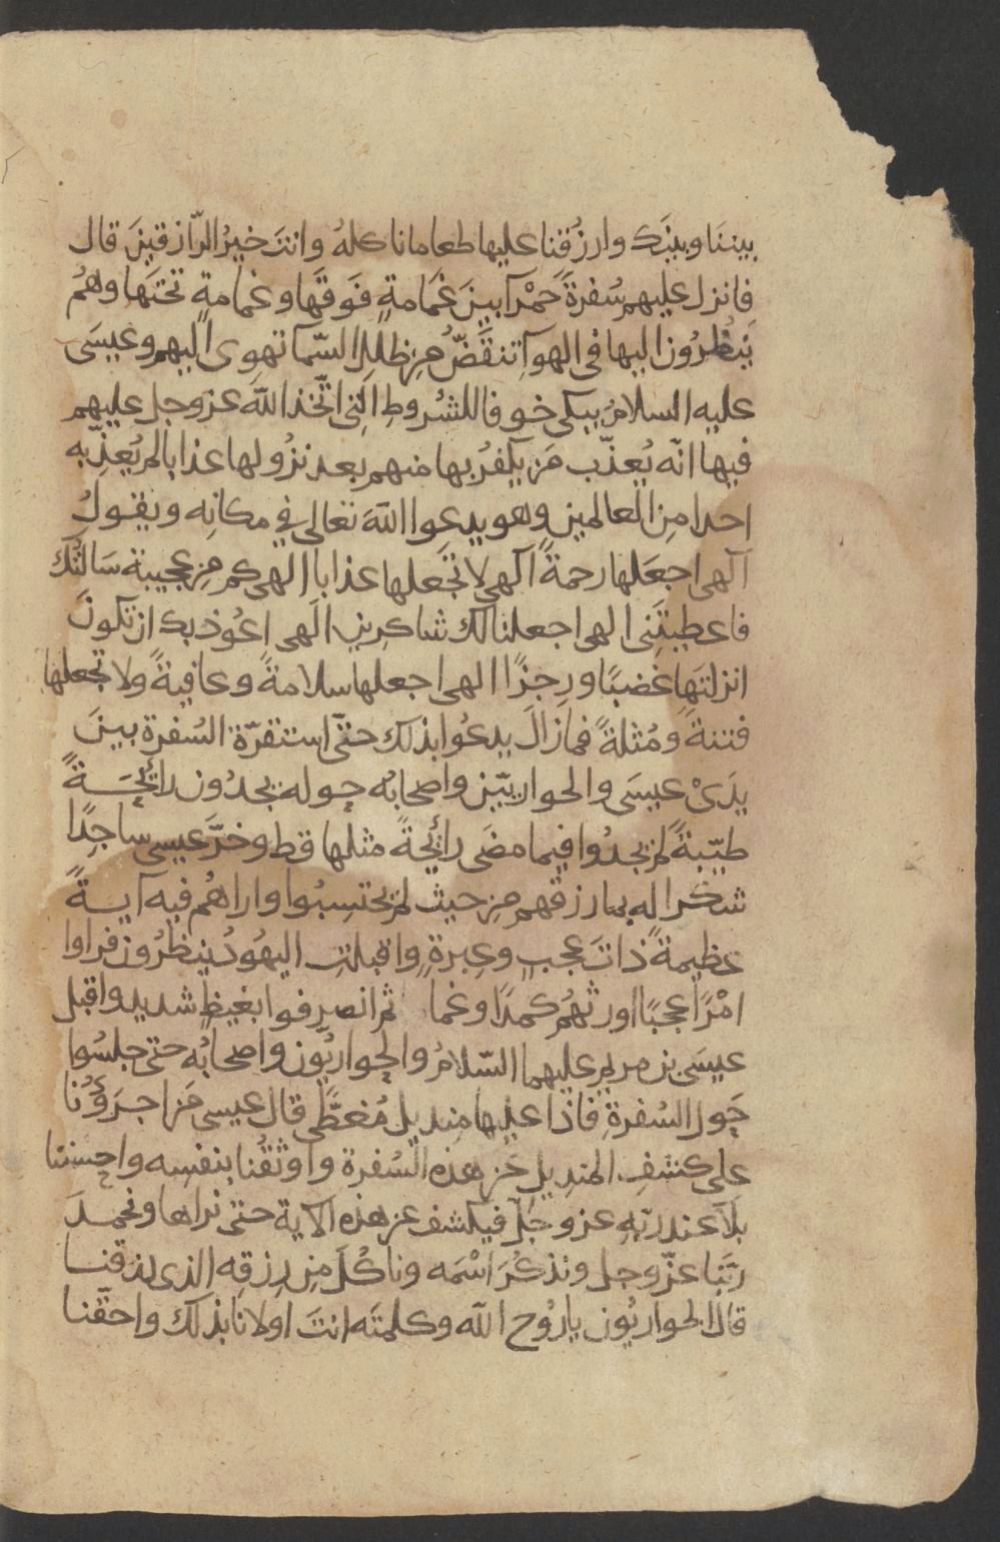 بيننَا وبينَك وارزُقنا عليها طعاما ناكلهُ وانتَ خيرُ الرّازقينَ قال
فانزل عليهم سُفرةً حَمْرآ بينَ غَمَامةٍ فَوقهَا وغمامةٍ تحتَها وهُم
يَنظُرُون اليها فى الهوآ تنقَضُّ مِن ظلل السّما تهوِى اليهم وعيسَى
عليه السلامُ يبكى خوفا للشُروطِ التى اتّخذ اللّه عز وجل عليهم
فيها انّه يُعذّب مَن يكفرُ بها منهم بعد نزُولها عذابا لم يُعذّبه
احدا مِن العالمين وهو يدعوا اللّهَ تعالى فِي مكانِه ويقولُ
آلهى اجعَلها رحمةً آلهي لا تجعلها عذابا الهى كم مِن عجيبة سَالتُك
فاعطيتَنى الهى اجعلنا لك شاكرين الَهى اعُوذ بك ان تكونَ
انزلتَها غضبًا ورِجزًا الهى اجعلها سلامةً وعافيةً ولا تجعلها
فتنةً ومُثلةً فما زالَ يدعُوا بذلك حتّى استقرّة السُفرة بينَ
يدَىْ عيسَى والحواريّين واصحابُه حوله يجدُون رائحَةً
طيّبةً لم يجدُوا فيما مضَى رائحةً مثلها قط وخرَّ عيسى ساجِدًا
شكرا له بما رزقهم مِن حيث لم يحتسِبُوا واراهُم فيه آيةً
عظيمةً ذاتَ عجبٍ وعِبرةٍ واقبلتِ اليهُودُ ينظرُون فراوا
امْرًا عجبًا اورثهُم كمدًا وغما ثم انصرفوا بغيظٍ شديد واقبل
عيسَى بن مريم عليهما السّلامُ والحواريُون واصحابُه حتى جلسُوا
حَول السُفرةِ فاذا عليها مِنديل مُغطَّى قال عيسى مَن اجرَؤُنا
على كشفِ المنديل عَن هذه السُفرة واوثقُنا بنفسِه واحسننا
بلآ عند ربّهِ عز وجَلّ فيكشف عن هذه الآية حتى نراها ونحمدَ
ربّنا عزّ وجل ونذكُرَ اسْمَه وناكُلَ مِن رِزقِه الذى رزقنا
قال الحواريُون يا رُوح اللّه وكلمتَه انتَ اولانا بذلك واحقّنا